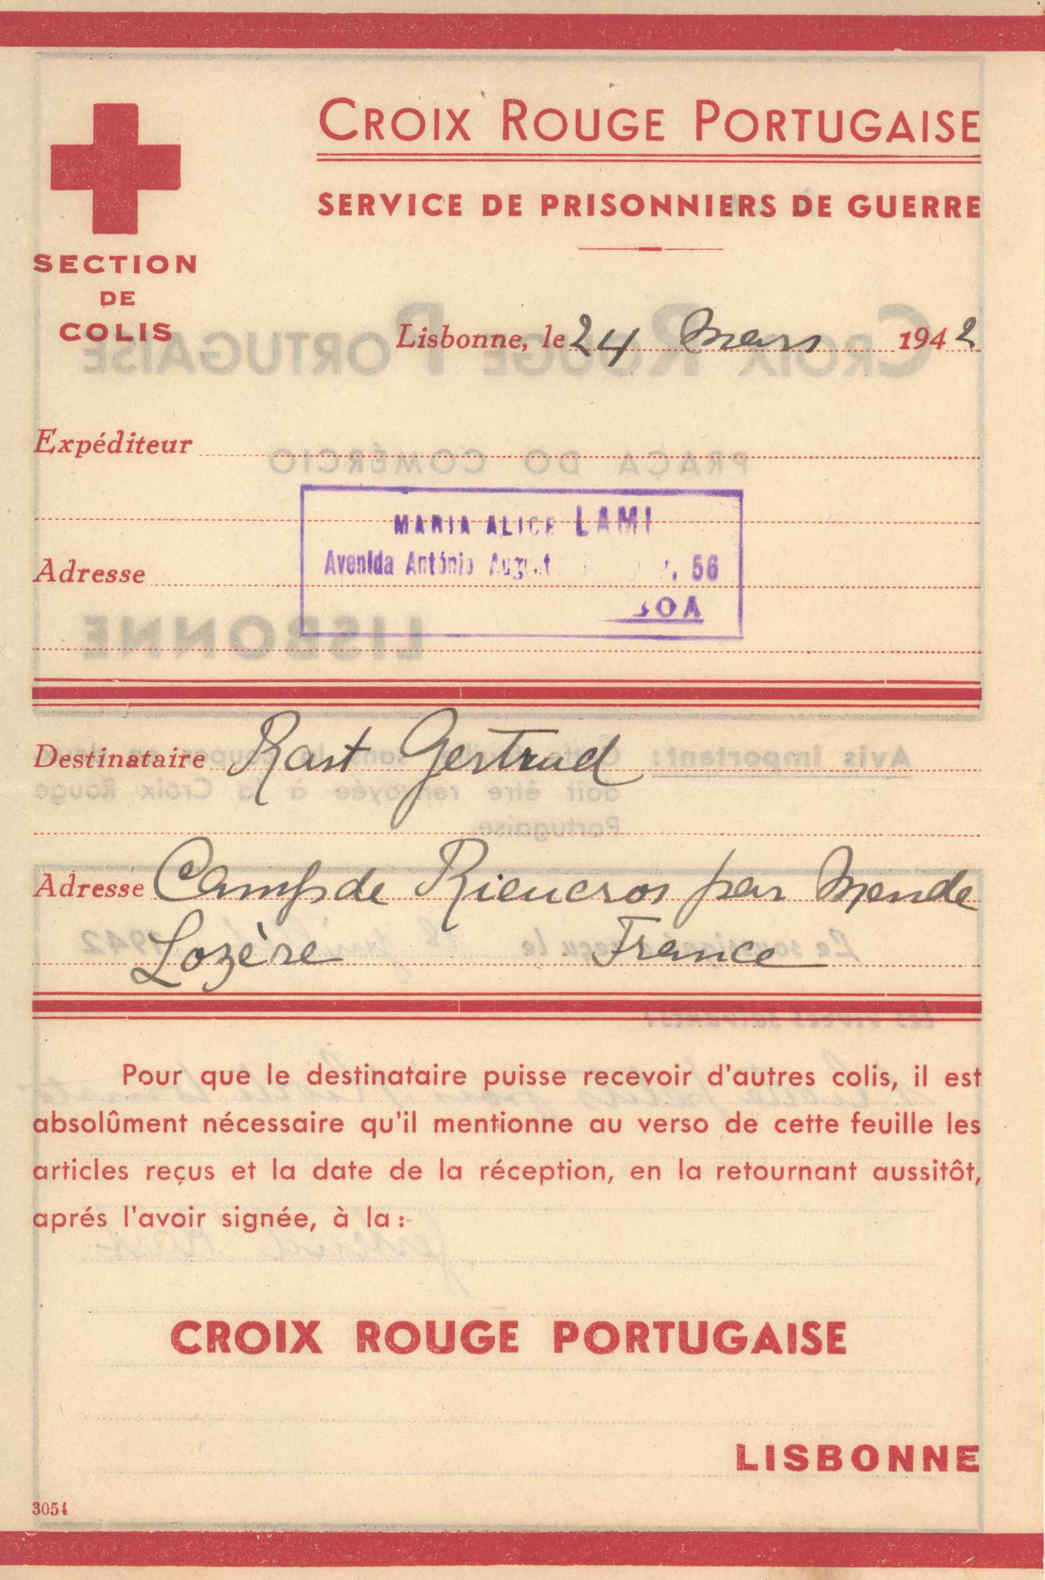 CROIX ROUGE PORTUGAISE
SERVICE DE PRISONNIERS DE GUERRE
SECTION
DE
COLIS
Lisbonne, le 24 Mars 1942
Expéditeur
MARIA ALICE LAMI
Avenida António 56
Adresse
Destinataire Rast Gertrud
Adresse Camp de Rieucros par Mende
Lozère France
Pour que le destinataire puisse recevoir d'autres colis, il est
absolûment nécessaire qu'il mentionne au verso de cette feuille les
articles reçus et la date de la réception, en la retournant aussitôt,
aprés l'avoir signée, à la:
CROIX ROUGE PORTUGAISE
LISBONNE
3054